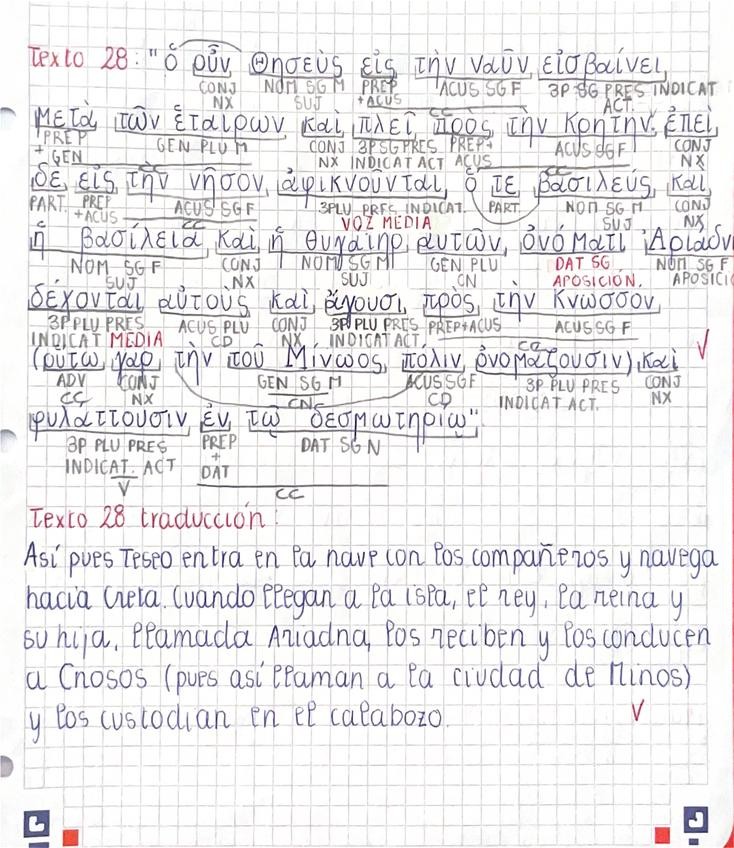 Texto 28: "ὁ οὖν Θησεὺς εἰς τὴν ναῦν εἰσβαίνει
CONJ NOM SG M PREP ACUS SG F 3P SG PRES INDICAT
NX SUJ +ACUS ACT.
CC
μετὰ τῶν ἑταίρων καὶ πλεῖ πρὸς τὴν Κρήτην. ἐπεὶ
PREP GEN PLU M CONJ 3P SG PRES PREP+ ACUS SG F CONJ
+ GEN NX INDICAT ACT ACUS NX
CC CC
δὲ εἰς τὴν νῆσον ἀφικνοῦνται, ὅ τε βασιλεύς καὶ
PART. PREP ACUS SG F 3PLU PRES INDICAT. PART. NOM SG M CONJ
+ACUS VOZ MEDIA SUJ NX
CC
ἡ βασίλεια καὶ ἡ θυγάτηρ αυτῶν, ὀνόματι Ἀριάδν
NOM SG F CONJ NOM SG M GEN PLU DAT SG NOM SG F
SUJ NX SUJ CN APOSICIÓN. APOSICIÓ
δέχονται αὐτοὺς καὶ ἄγουσι πρὸς τὴν Κνωσσον
3P PLU PRES ACUS PLU CONJ 3P PLU PRES PREP+ACUS ACUS SG F
INDICAT MEDIA CD NX INDICAT ACT.
CC
(οὕτω γαρ τὴν τοῦ Μίνωος πόλιν ὀνομάζουσιν) καὶ
ADV CONJ GEN SG M ACUS SG F 3P PLU PRES CONJ
CC NX CN CD INDICAT ACT. NX
φυλάττουσιν ἐν τῷ δεσμωτηρίῳ".
3P PLU PRES PREP DAT SG N
INDICAT. ACT +
V DAT
CC
Texto 28 traducción:
Así pues Teseo entra en la nave con los compañeros y navega
hacia Creta. Cuando llegan a la isla, el rey, la reina y
su hija, llamada Ariadna, los reciben y los conducen
a Cnosos (pues así llaman a la ciudad de Minos)
y los custodian en el calabozo.